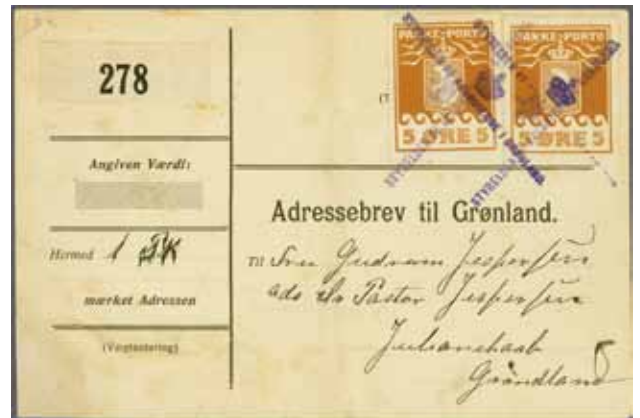 278
Angiven Værdi:
Hermed 1 PK
mærket Adressen
(Vægtantering)
PAKKE-PORTO
5 ØRE 5
PAKKE-PORTO
5 ØRE 5
(T
Adressebrev til Grønland.
Til Fru Gudrun Jespersen
Pastor Jespersen
Julianehaab
Gröndland